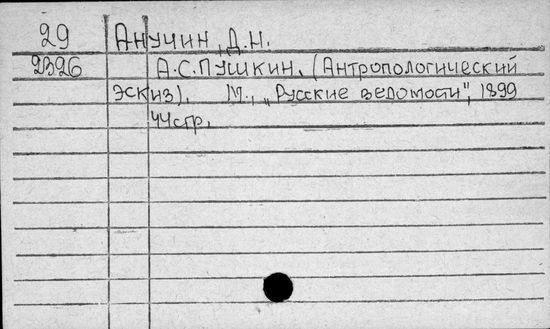 29 Анучин, Д.Н.
2326 А.С.Пушкин. (Антропологический
эскиз). М., „Русские ведомости", 1899
44стр.